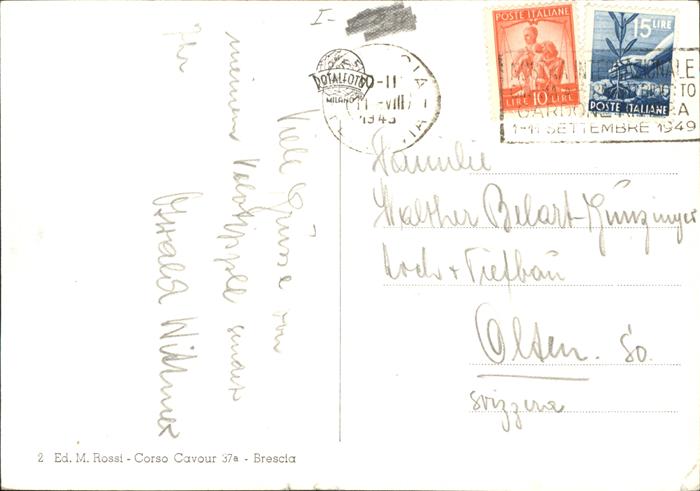 I-
POSTE ITALIANE
LIRE 10 LIRE
15 LIRE
POSTE ITALIANE
DOTALFOTO
MILANO
11 -VIII
1949
GARDONE RIVIERA
1-11 SETTEMBRE 1949
Viele Grüsse von
meinem sendet
Ihr
Oswald Wittmer
Familie
Walther Belart-Günzinger
Hoch + Tiefbau
Olten. So.
Svizzera
2 Ed. M. Rossi - Corso Cavour 37a - Brescia